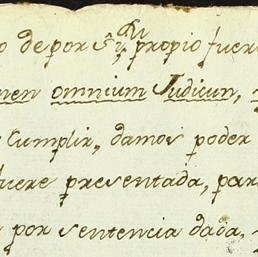 o de por Sí, y propio fuero
nen omnium Judicun,
Cumplir, damos poder
fuere presentada, para
por sentencia dada,